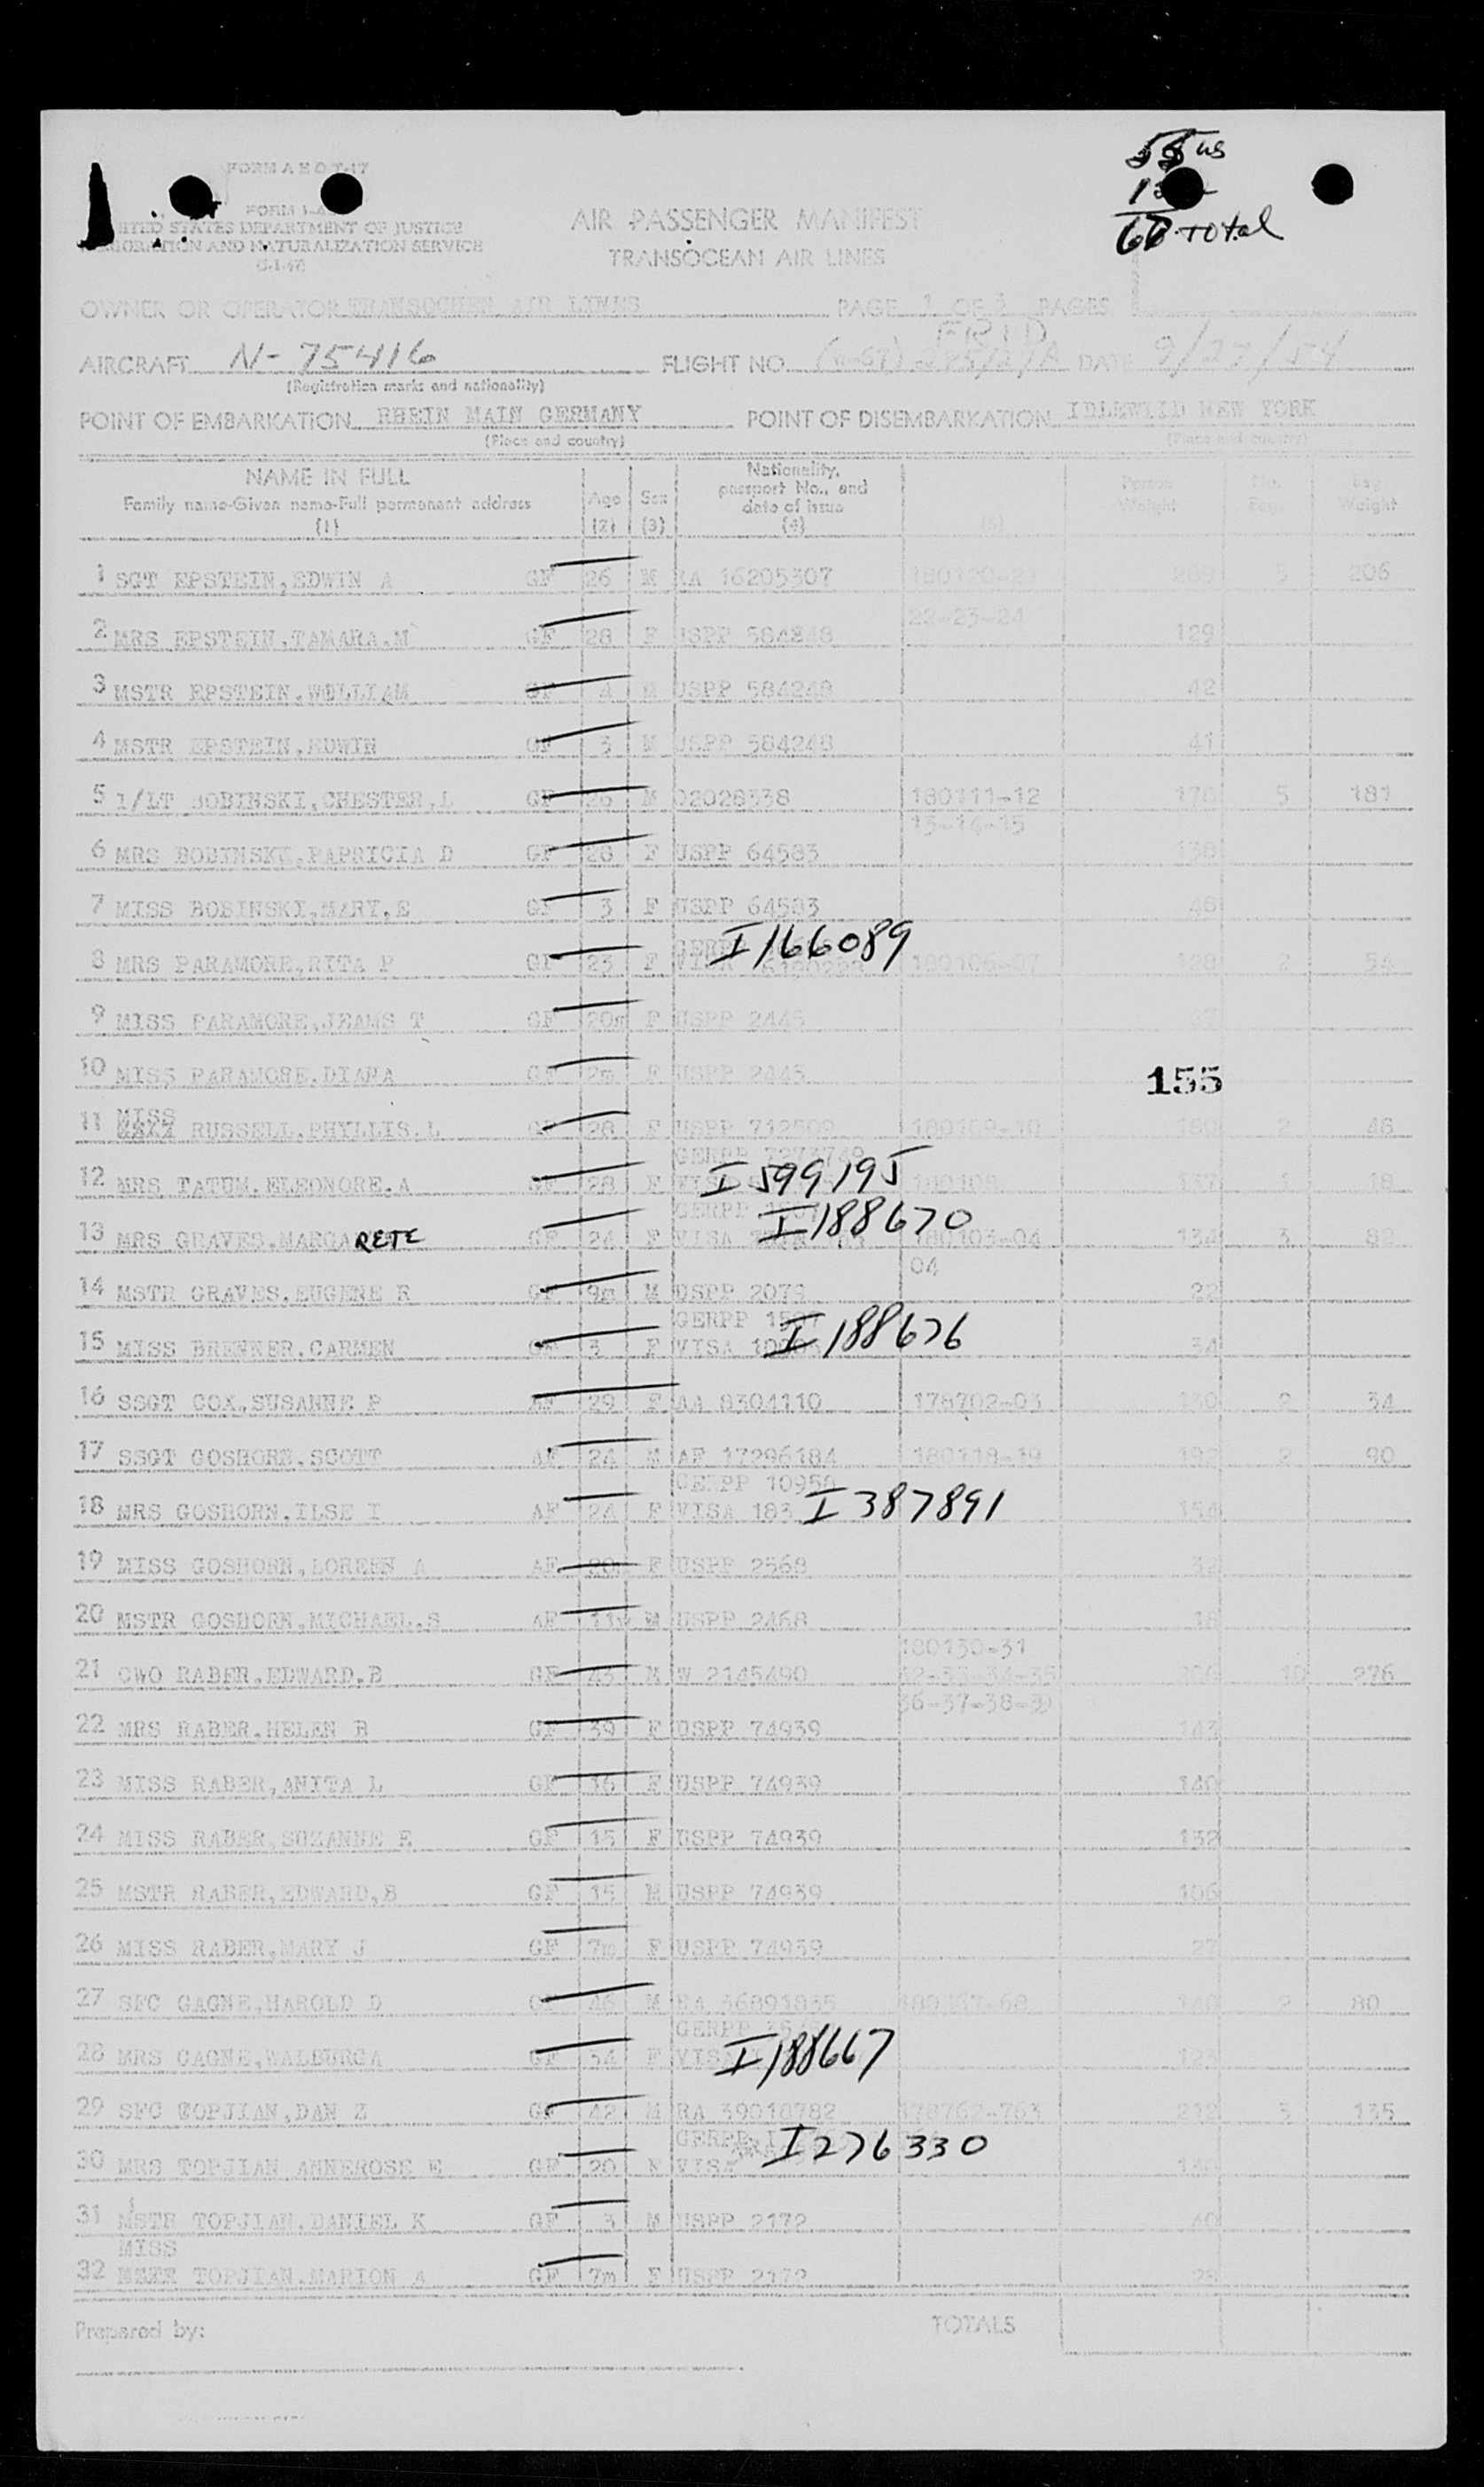 FORM A E O T-17
55 us
FORM I-4
UNITED STATES DEPARTMENT OF JUSTICE
IMMIGRATION AND NATURALIZATION SERVICE
AIR PASSENGER MANIFEST
TRANSOCEAN AIR LINES
Total
OWNER OR OPERATOR TRANSOCEAN AIR LINES PAGE 1 OF 3 PAGES
AIRCRAFT N-75416 FLIGHT NO. DATE 9/27/54
(Registration marks and nationality)
POINT OF EMBARKATION RHEIN MAIN GERMANY POINT OF DISEMBARKATION IDLEWILD NEW YORK
(Place and country) (Place and country)
NAME IN FULL Nationality, Person No. Bag
Family name-Given name-Full permanent address Age Sex passport No., and Weight Bag. Weight
date of issue
(1) (2) (3) (4) (5)
1 SGT EPSTEIN,EDWIN A GF 26 M RA 16205307 5 206
22-23-24
2 MRS EPSTEIN,TAMARA.M GF 28 F USPP 584248 129
3 MSTR EPSTEIN.WILLIAM GF 4 M USPP 584248 42
4 MSTR EPSTEIN,EDWIN GF 3 M USPP 584248 41
5 1/LT BOBINSKI,CHESTER,L GF 26 M 02028338 180111-12 5 181
13-14-15
6 MRS BOBINSKI,PAPRICIA D GF F USPP 64583 138
7 MISS BOBINSKI,MARY,E GF 3 F USPP 64583
I 166089
8 MRS PARAMORE,RITA P GF 23 F VISA 180106-07 128 2 54
9 MISS PARAMORE,JEAMS T GF 20m F USPP 2445
10 MISS PARAMORE.DIANA GF 2m F USPP 2445 155
MISS
11 RUSSELL.PHYLLIS.L GF 28 F USPP 712509 180109-10 2 48
GERPP
12 MRS TATUM.ELEONORE.A GF 28 F I 599195 137 1 18
GERPP I 188670
13 MRS GRAVES.MARGARETE GF 24 F VISA 180103-04 134 3 82
04
14 MSTR GRAVES.EUGENE R GF 9m M USPP 2079 22
GERPP
15 MISS BRENNER.CARMEN GF 3 F VISA I 188676 34
16 SSGT COX,SUSANNE P AF 29 F AA 8304110 178702-03 130 2 54
17 SSGT GOSHORN.SCOTT AF 24 M AF 17296184 180118-19 192 2 90
GERPP 1095
18 MRS GOSHORN.ILSE I AF 24 F VISA 183 I 387891 154
19 MISS GOSHORN,LOREEN A AF F USPP 2568 32
20 MSTR GOSHORN,MICHAEL.S AF M USPP 2468 18
180130-31
21 CWO RABER.EDWARD.B GF 43 M W 2145490 32-33-34-35 10 276
36-37-38-39
22 MRS RABER.HELEN B GF 39 F USPP 74939 143
23 MISS RABER,ANITA L GF 16 F USPP 74939 140
24 MISS RABER,SUZANNE E GF 15 F USPP 74939 132
25 MSTR RABER,EDWARD,B GF 15 M USPP 74939 106
26 MISS RABER,MARY J GF 7m F USPP 74939 27
27 SFC GAGNE,HAROLD D GF 46 M RA 36891835 2 80
GERPP
28 MRS GAGNE,WALBURGA GF 34 F I 188667 123
29 SFC TOPJIAN,DAN Z GF 42 M RA 39018782 178762-763 212 3 135
GERPP
30 MRS TOPJIAN ANNEROSE E GF 20 F VISA I 276330 130
31 MSTR TOPJIAN.DANIEL K GF 3 M USPP 2172 40
MISS
32 MSTR TOPJIAN.MARION A GF 7m F USPP 2172 28
Prepared by: TOTALS